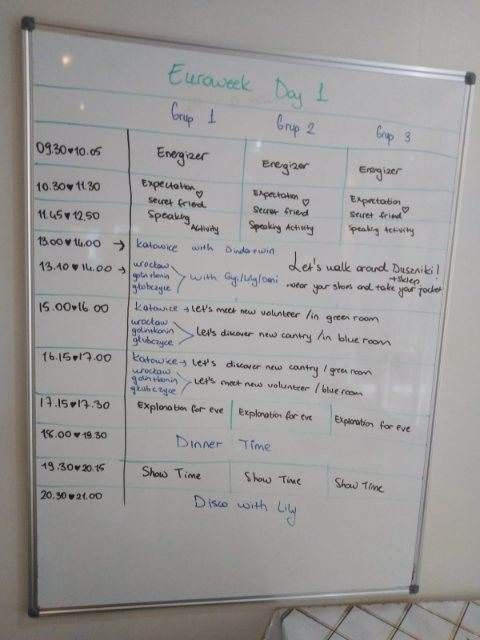 Euroweek Day 1
Grup 1 Grup 2 Grup 3
09.30♥10.05 Energizer Energizer Energizer
10.30♥11.30 Expectation ♡ Expectation ♡ Expectation ♡
Secret friend Secret friend Secret friend
11.45♥12.50 Speaking Activity Speaking Activity Speaking Activity
13.00♥14.00 → Katowice with
13.10♥14.00 → wrocław
głubczyce
with Let's walk around Duszniki!
+sklep
wear your shoes and take your jacket
15.00♥16.00 Katowice → Let's meet new volunteer /in green room
wrocław
głubczyce
Let's discover new cantry /in blue room
16.15♥17.00 Katowice → Let's discover new cantry /green room
wrocław
głubczyce
Let's meet new volunteer /blue room
17.15♥17.30 Explanation for eve Explanation for eve Explanation for eve
18.00♥18.30 Dinner Time
19.30♥20.15 Show Time Show Time Show Time
20.30♥21.00 Disco with Lily